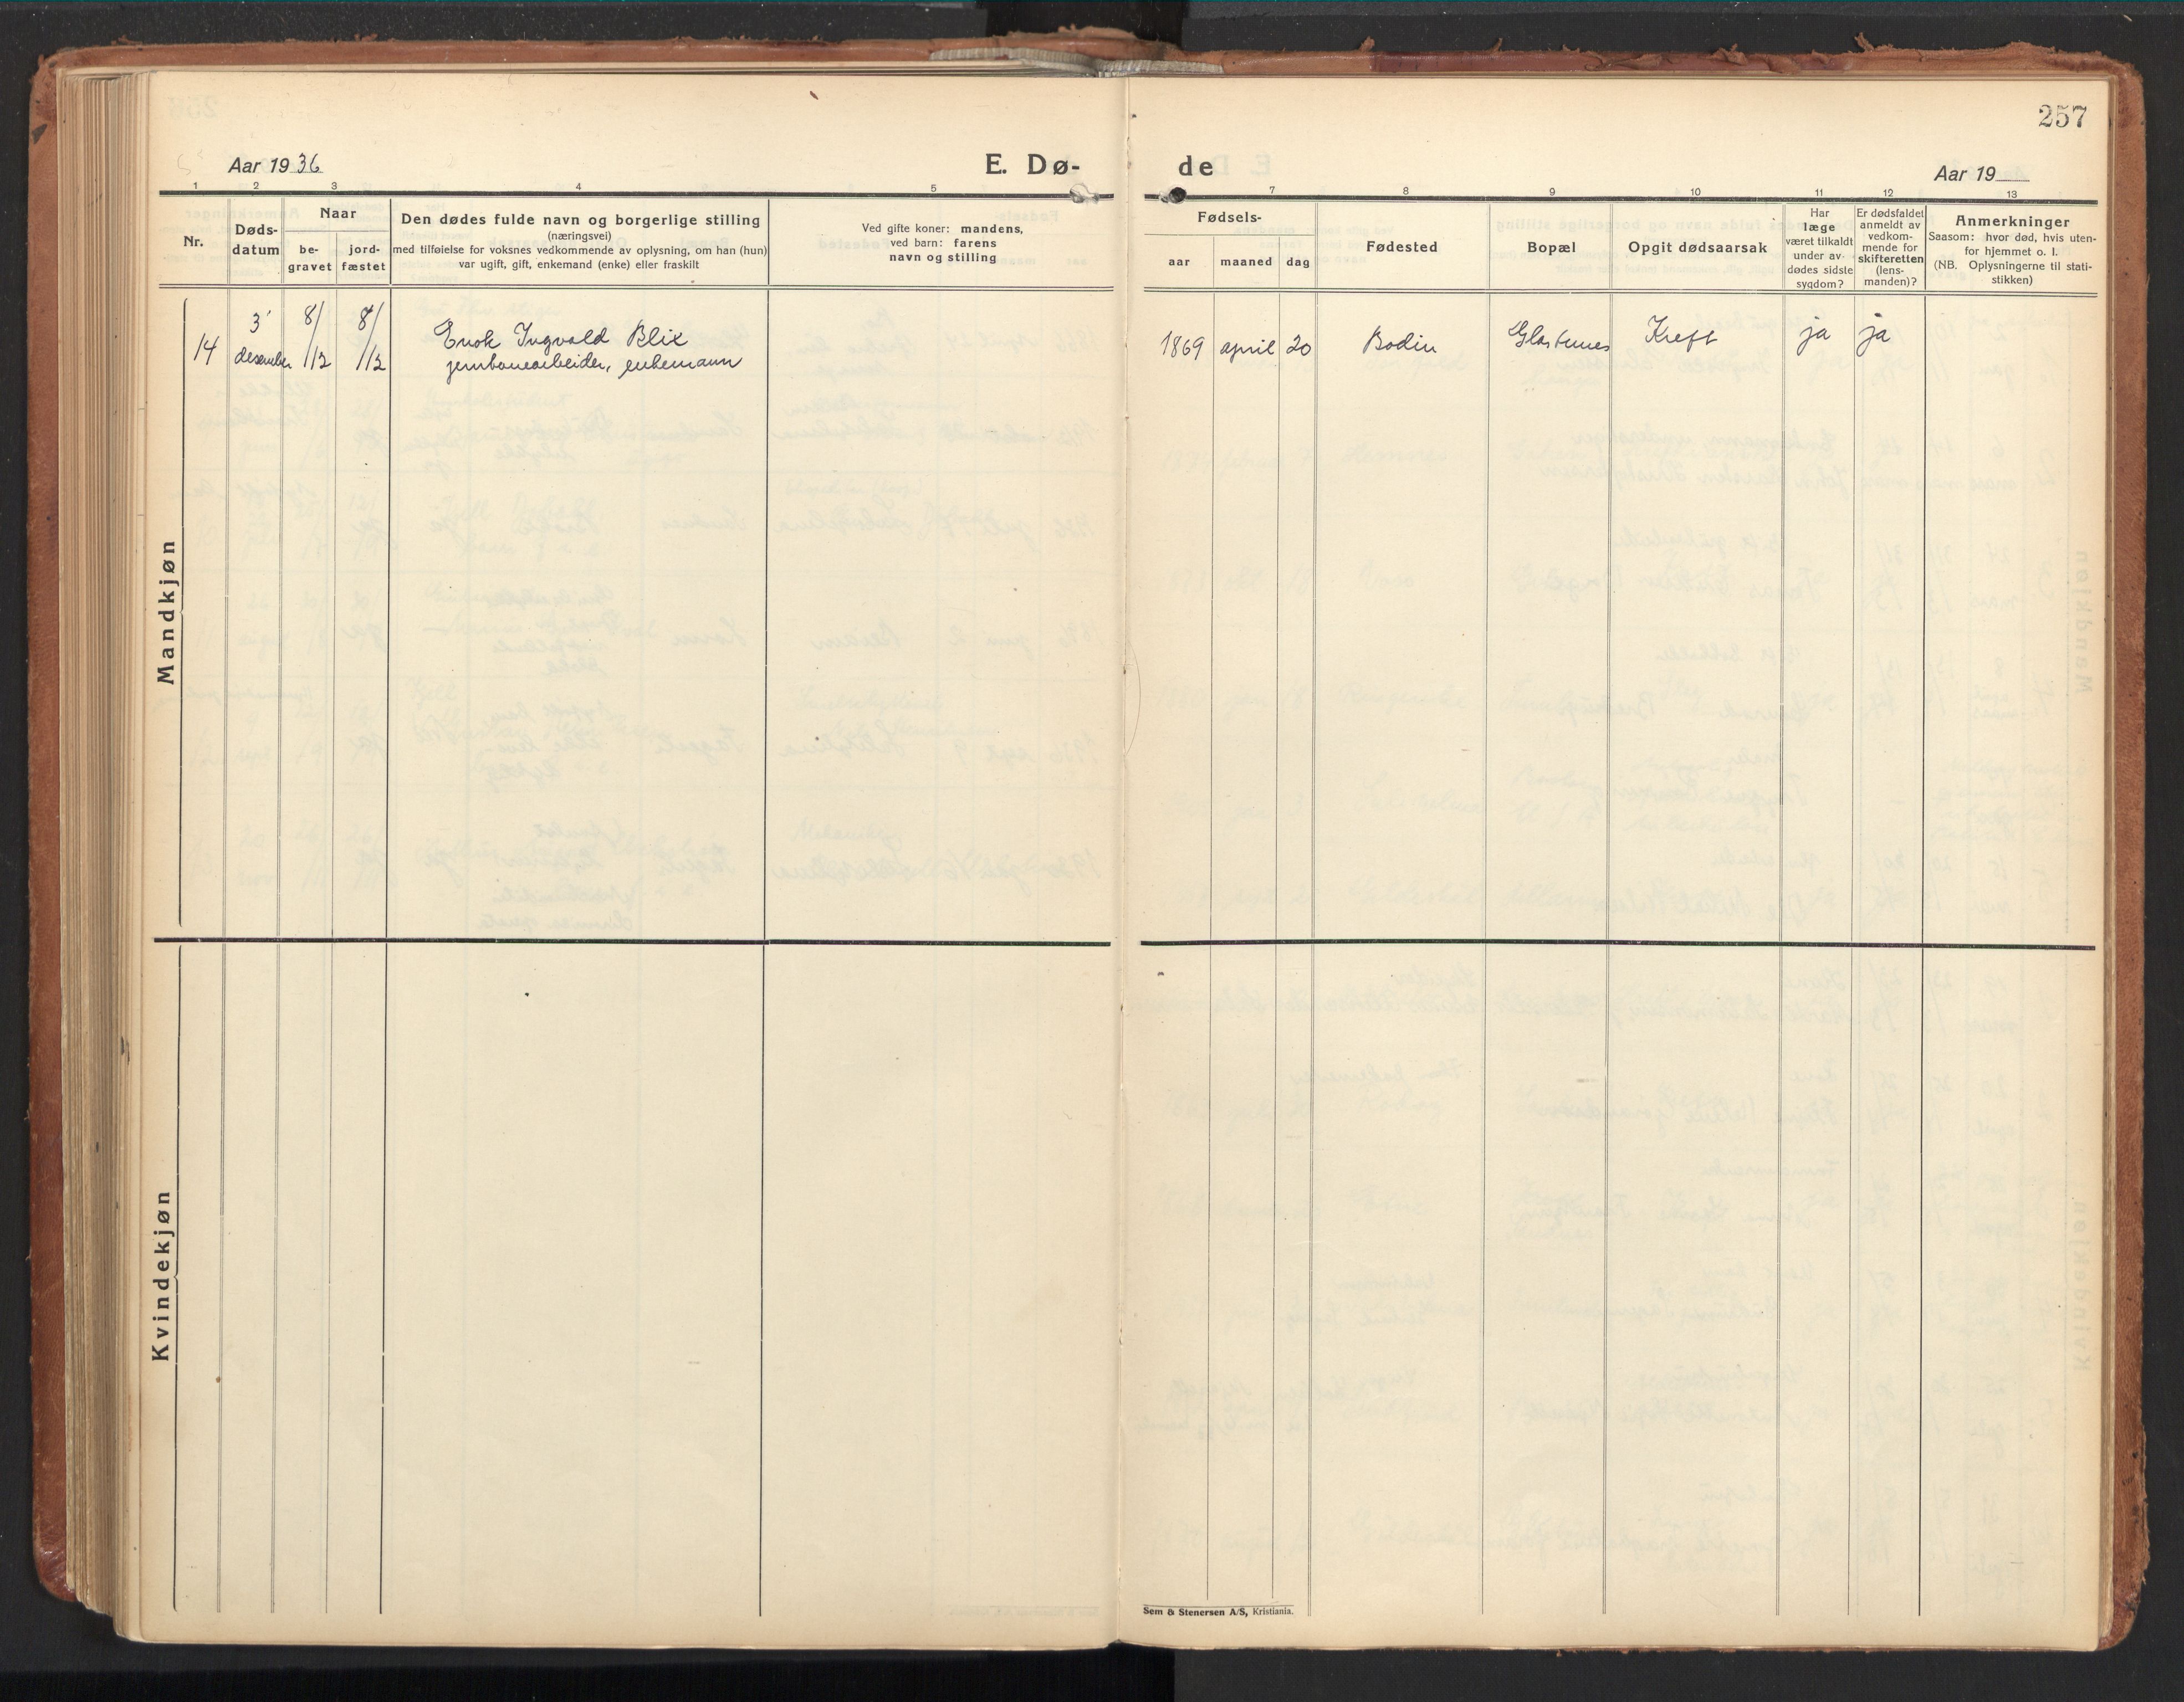 257
Aar 1936
E. Dø-
de
Aar 19
1 2 3 4 5 7 8 9 10 11 12 13
Nr.
Døds-
datum
Naar
be-
gravet
jord-
fæstet
Den dødes fulde navn og borgerlige stilling
(næringsvei)
med tilføielse for voksnes vedkommende av oplysning, om han (hun)
var ugift, gift, enkemand (enke) eller fraskilt
Ved gifte koner: mandens,
ved barn: farens
navn og stilling
Fødsels-
aar maaned dag
Fødested
Bopæl
Opgit dødsaarsak
Har
læge
været tilkaldt
under av-
dødes sidste
sygdom?
Er dødsfaldet
anmeldt av
vedkom-
mende for
skifteretten
(lens-
manden)?
Anmerkninger
Saasom: hvor død, hvis uten-
for hjemmet o. l.
(NB. Oplysningerne til stati-
stikken)
Mandkjøn
14
3'
desember
8/
12
8/
12
Enok Ingvald Blix
jernbanearbeider, enkemann
1869 april 20 Bodin Kreft ja ja
Kvindekjøn
Sem & Stenersen A/S, Kristiania.